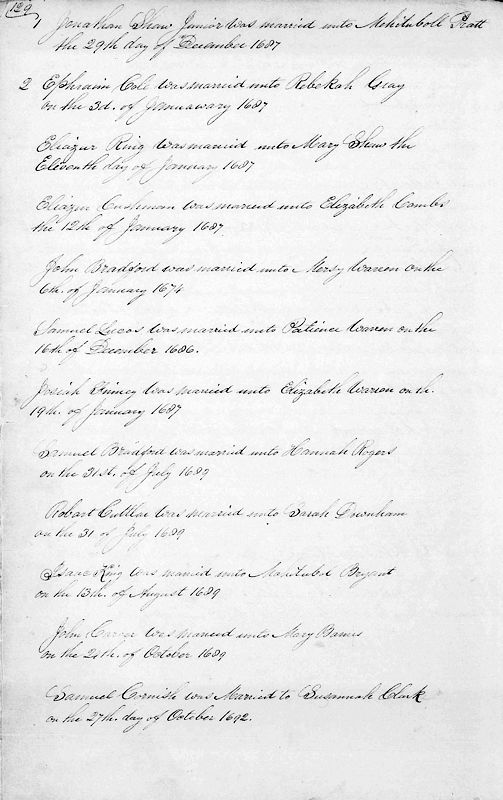 129
1 Jonathan Shaw Junior was married unto Mehituboll Pratt
the 29th day of December 1687
2 Ephraim Cole was married unto Rebekah Gray
on the 3d. of Januawary 1687
Eliazur Ring was married unto Mary Shaw the
Eleventh day of January 1687
Eliazur Cushman was married unto Elizabeth Combs
the 12th of January 1687
John Bradford was married unto Mersy Warren on the
6th. of January 1674
Samuel Lucos was married unto Patience Warren on the
16th of December 1686.
Josiah Finney was married unto Elizabeth Warren on th.
19th. of January 1687
Samuel Bradford was married unto Hannah Rogers
on the 31st. of July 1689
Robart Cuttlar was married unto Sarah Downham
on the 31 of July 1689
Isaac King was married unto Mahitubel Bryant
on the 13th. of August 1689
John Carver was married unto Mary Barnes
on the 24th. of October 1689
Samuel Cornish was Married to Susannah Clark
on the 27th. day of October 1692.